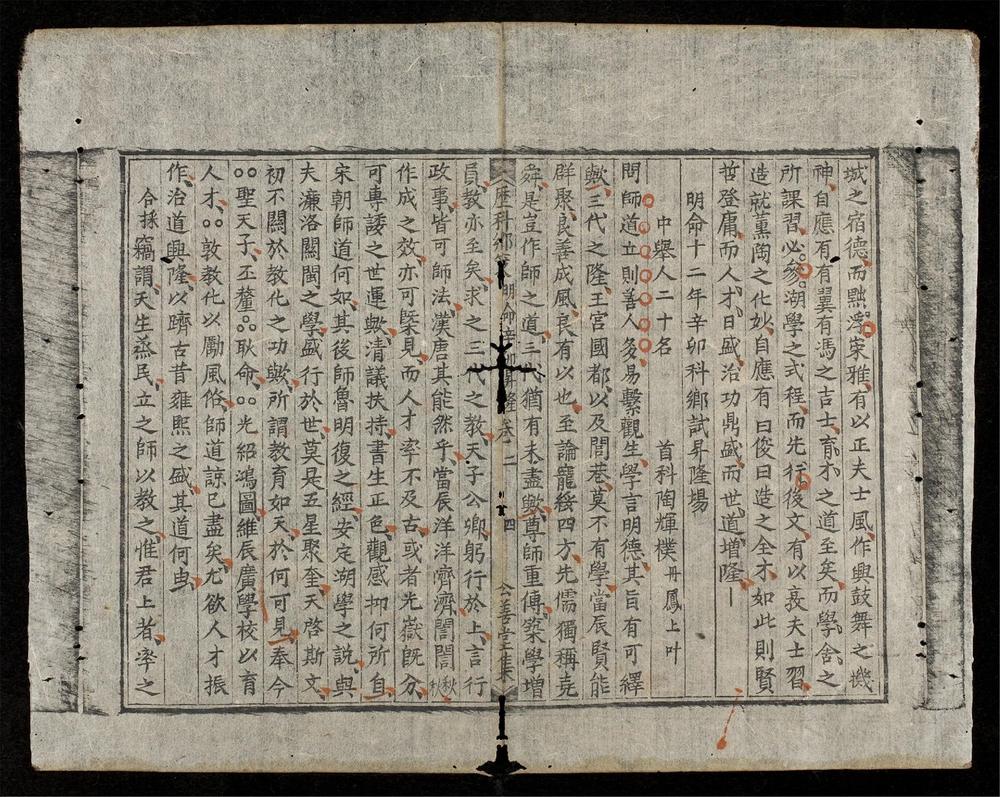 城之宿德而黜浮崇雅有以正夫士風作興鼓舞之機
神自應有有翼有馮之吉士育才之道至矣而學舍之
所課習必參湖學之式程而先行後文有以長夫士習
造就薰陶之化妙自應有曰俊曰造之全才如此則賢
登庸而人才日盛治功鼎盛而世道增隆
明命十二年辛卯科鄉試昇隆場
中舉人二十名 首科陶輝樸丹鳳上叶
問師道立則善人多易繫觀生學言明德其旨有可繹
歟三代之隆王宮國都以及閭巷莫不有學當辰賢能
群聚良善成風良有以也至論寵綏四方先儒獨稱堯
舜是豈作師之道三代猶有未盡歟尊師重傳築學增
員教亦至矣求之三代之教天子公卿躬行於上言行
政事皆可師法漢唐其能然乎當辰洋洋濟濟誾誾秋秋
作成之效亦可槩見而人才率不及古或者光嶽既分
可專諉之世運歟清議扶持書生正色觀感抑何所自
宋朝師道何如其後師魯明復之經安定湖學之說與
夫濂洛關閩之學盛行於世莫是五星聚奎天啓斯文
初不關於教化之功歟所謂教育如天於何可見奉今
聖天子丕釐耿命光紹鴻圖維辰廣學校以育
人才敦教化以勵風俗師道諒已盡矣尤欲人才振
作治道興隆以躋古昔雍熙之盛其道何由
合採竊謂天生烝民立之師以教之惟君上者率之
歷科鄉
明命辛卯昇隆卷二
四
公善堂集